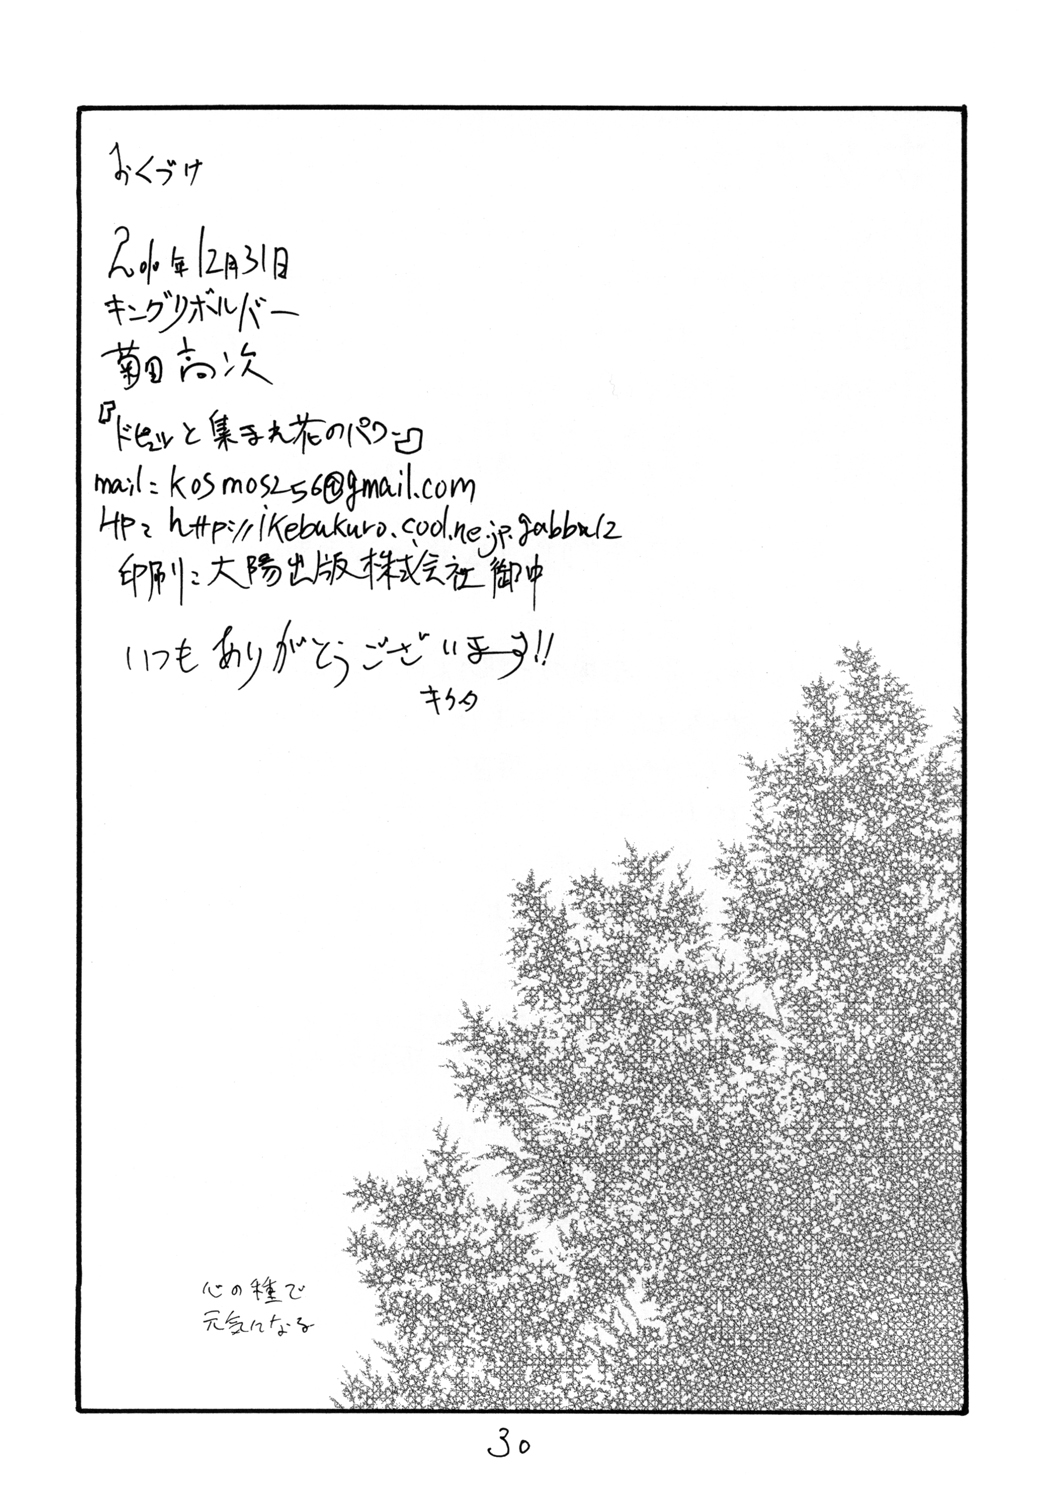 おくづけ
2010年12月31日
キングリボルバー
菊田高次
『ドピュッと集まれ花のパワー』
mail: kosmos256@gmail.com
HP: http://ikebukuro.cool.ne.jp.gabba12
印刷:大陽出版株式会社 御中
いつもありがとうございます!!
キクタ
心の種で
元気になる
30